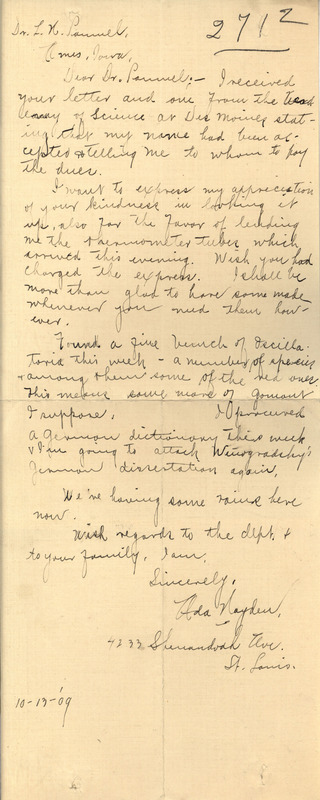 Dr. L. H. Pammel,
271 2
Ames, Iowa.
Dear Dr. Pammel:- I received
your letter and one from the
Acad-
emy of Science at Des Moines stat-
ing that my name had been ac-
cepted & telling me to whom to pay
the dues.
I want to express my appreciation
of your kindness in looking it
up, also for the favor of lending
me the thermometer tubes which
arrived this evening. Wish you had
charged the express. I shall be
more than glad to have some made
whenever you need them how-
ever.
Found a fine bunch of Oscilla-
toria this week - a number of species
& among them some of the red ones.
This means some more of Gomont
I suppose. I procured
a German dictionary this week
& I'm going to attack Winogradsky's
German dissertation again.
We're having some rains here
now.
With regards to the dept. &
to your family, I am,
Sincerely,
Ada Hayden.
4233 Shenandoah Ave.
St. Louis.
10-13-'09